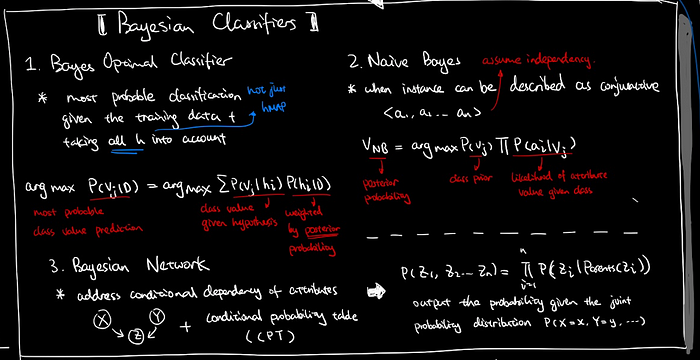 [ Bayesian Classifiers ]
1. Bayes Optimal Classifier
* most probable classification not just
given the training data + hMAP
taking all h into account
argmax P(Vj|D) = argmax ∑ P(Vj|hi) P(hi|D)
most probable
class value prediction
class value
given hypothesis
weighted
by posterior
probability
2. Naive Bayes assume independency.
* when instance can be described as conjunctive
<a1, a2 ... an>
VNB = argmax P(Vj) ∏ P(ai|Vj)
posterior
probability
class prior
likelihood of attribute
value given class
3. Bayesian Network
* address conditional dependency of attributes
X Y Z + conditional probability table
(CPT)
P(Z1, Z2 ... Zn) = n ∏ i=1 P(Zi | Parents(Zi))
output the probability given the joint
probability distribution P(X=x, Y=y, ...)